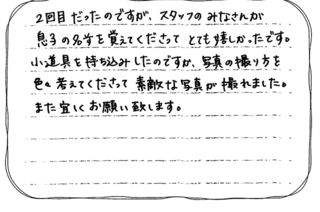 2回目だったのですが、スタッフのみなさんが
息子の名字を覚えてくださって とても嬉しかったです。
小道具を持ち込みしたのですが、写真の撮り方を
色々考えてくださって 素敵な写真が撮れました。
また宜しくお願い致します。